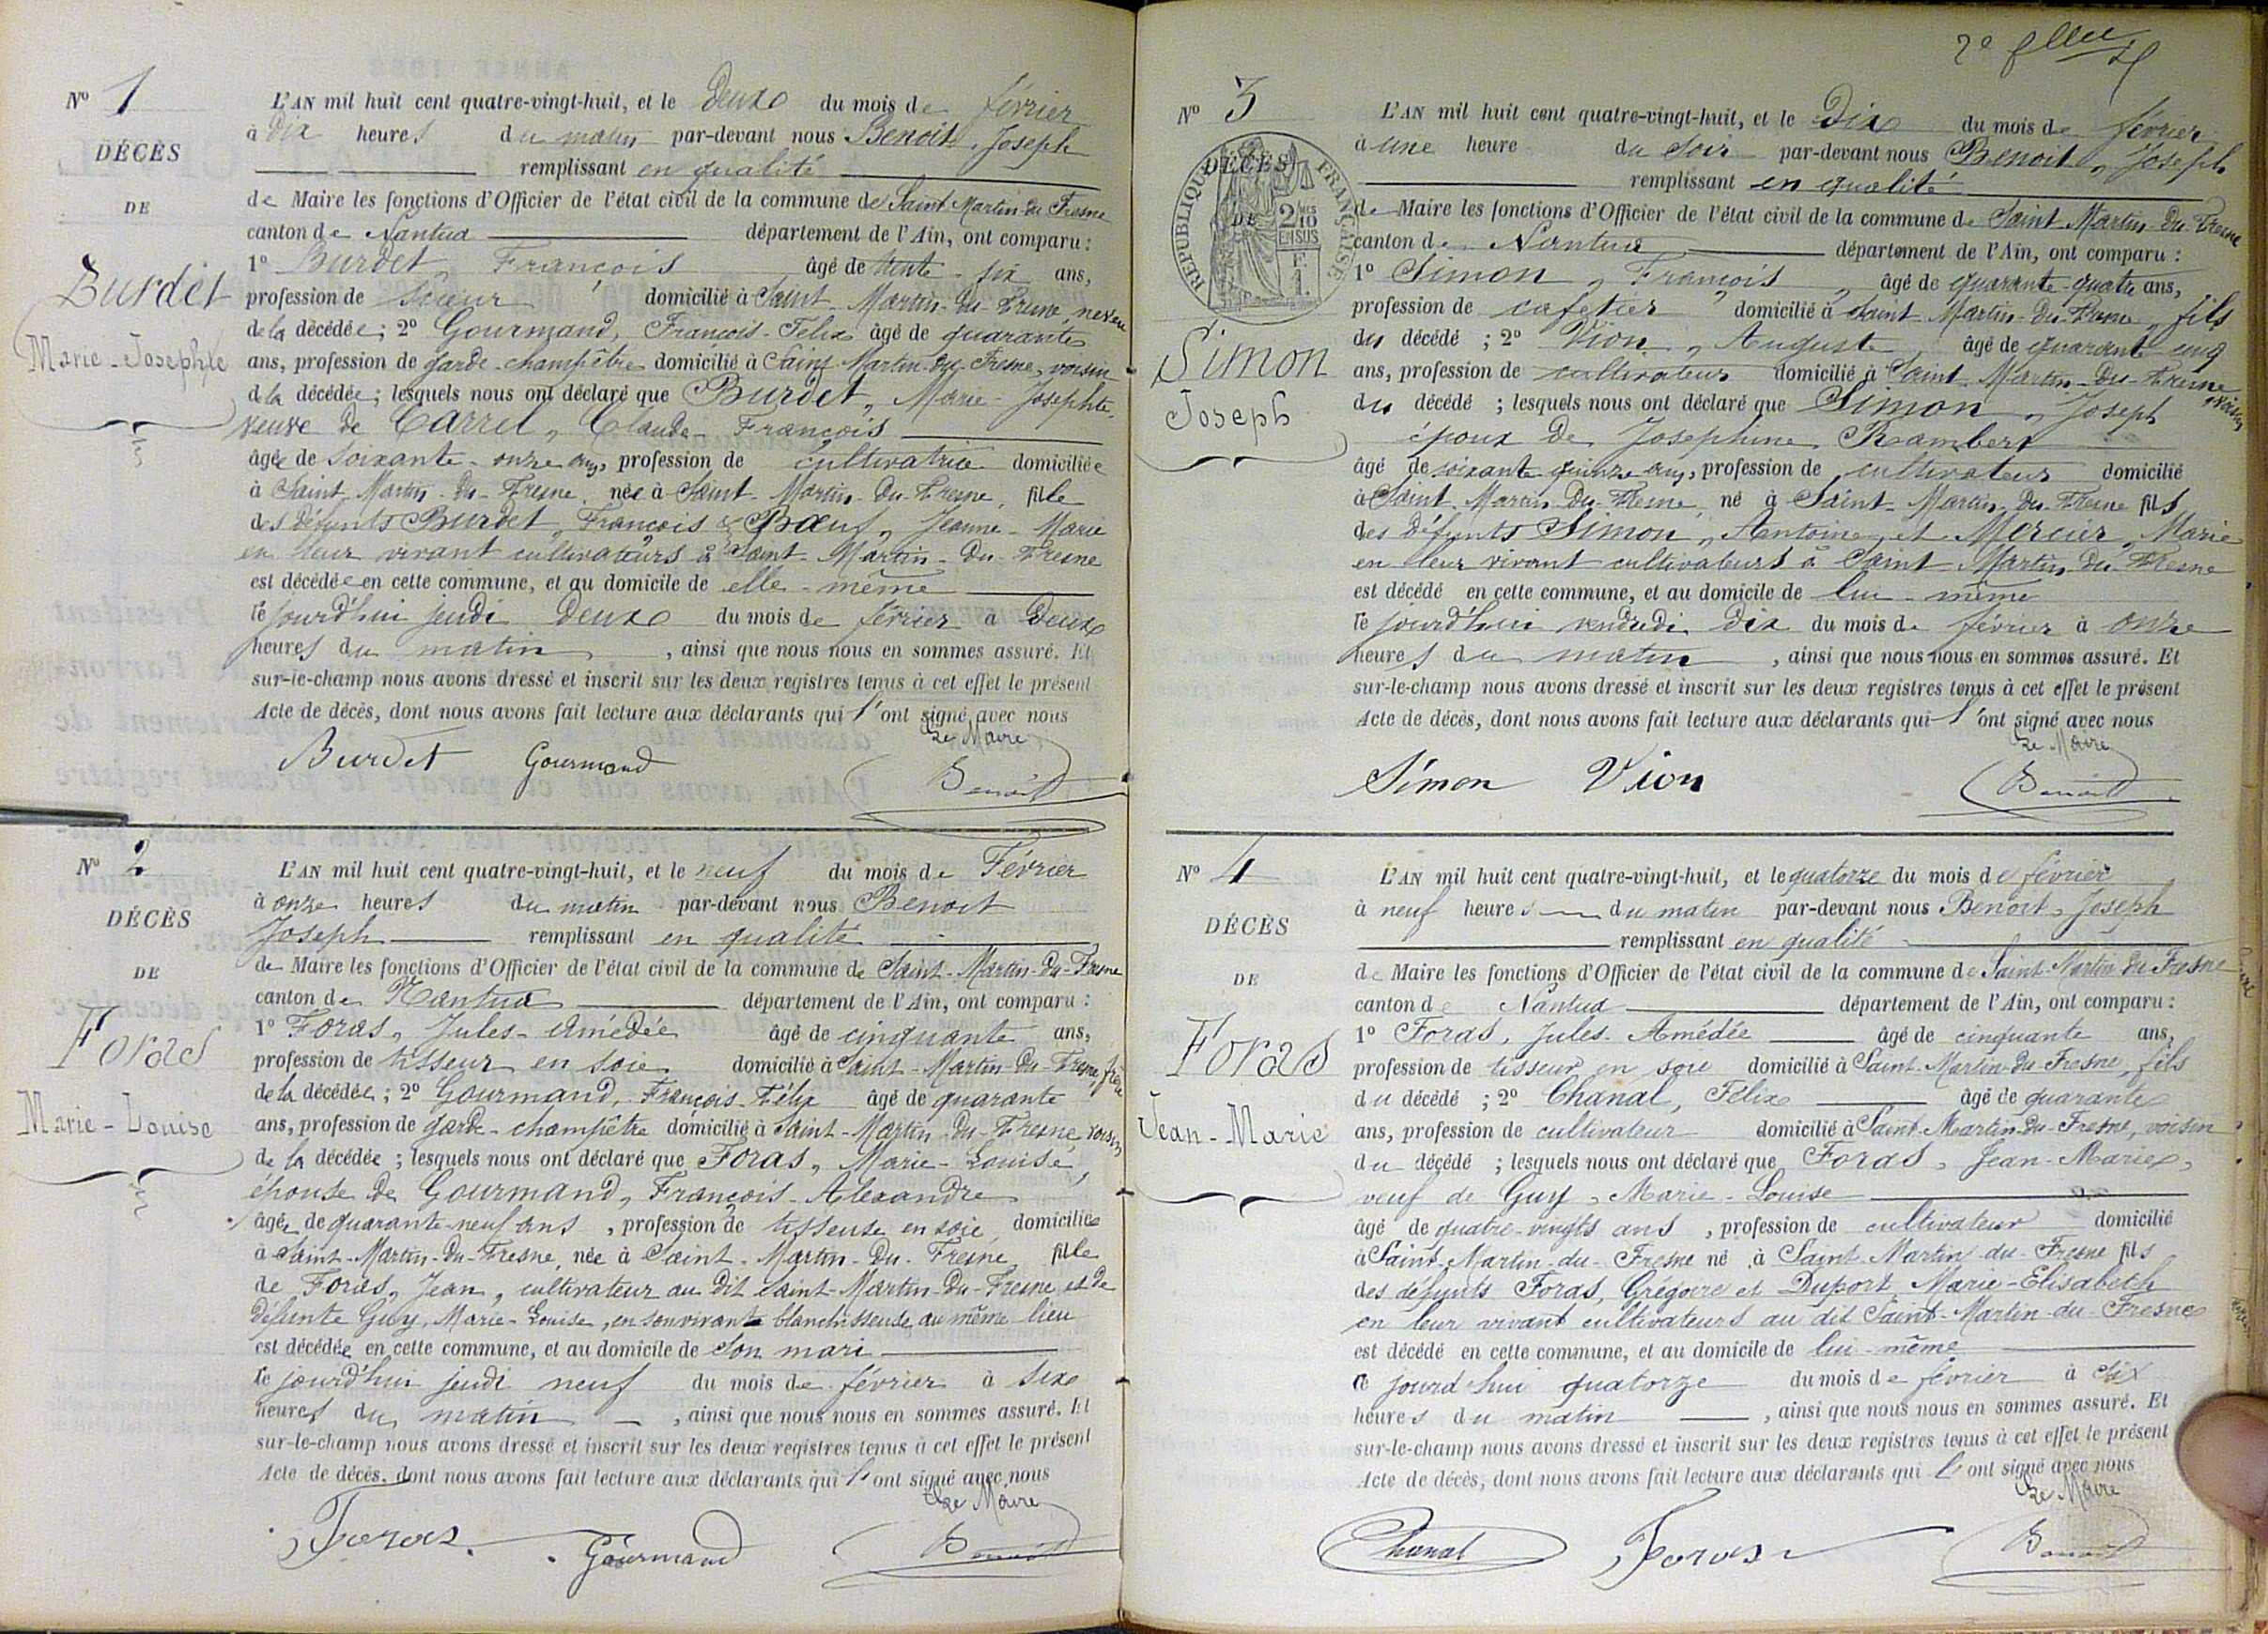 Nº 1
DÉCÈS
DE
Burdet
Marie-Josephte
L'AN mil huit cent quatre-vingt-huit, et le deux du mois de février
à dix heures du matin par-devant nous Benoit, Joseph
remplissant en qualité
de Maire les fonctions d'Officier de l'état civil de la commune de Saint-Martin-du-Fresne
canton de Nantua département de l'Ain, ont comparu :
1º Burdet, François âgé de trente-six ans,
profession de domicilié à Saint-Martin-du-Fresne, neveu
de la décédée ; 2º Gourmand, François-Félix âgé de quarante
ans, profession de garde-champêtre domicilié à Saint-Martin-du-Fresne, voisin
d la décédée ; lesquels nous ont déclaré que Burdet, Marie-Josephte,
veuve de Carrel, Claude-François
âgée de soixante-onze ans, profession de cultivatrice domiciliée
à Saint-Martin-du-Fresne, née à Saint-Martin-du-Fresne, fille
des défunts Burdet, François & Bœuf, Jeanne-Marie
en leur vivant cultivateurs à Saint-Martin-du-Fresne
est décédée en cette commune, et au domicile de elle-même
ce jourd'hui jeudi deux du mois de février à deux
heures du matin, ainsi que nous nous en sommes assuré. Et
sur-le-champ nous avons dressé et inscrit sur les deux registres tenus à cet effet le présent
Acte de décès, dont nous avons fait lecture aux déclarants qui l'ont signé avec nous
Le Maire
Burdet Gourmand Benoit
Nº 2
DÉCÈS
DE
Foras
Marie-Louise
L'AN mil huit cent quatre-vingt-huit, et le neuf du mois de Février
à onze heures du matin par-devant nous Benoit
Joseph remplissant en qualité
de Maire les fonctions d'Officier de l'état civil de la commune de Saint-Martin-du-Fresne
canton de Nantua département de l'Ain, ont comparu :
1º Foras, Jules-Amédée âgé de cinquante ans,
profession de tisseur en soie domicilié à Saint-Martin-du-Fresne, frère
de la décédée ; 2º Gourmand, François-Félix âgé de quarante
ans, profession de garde-champêtre domicilié à Saint-Martin-du-Fresne, voisin
de la décédée ; lesquels nous ont déclaré que Foras, Marie-Louise,
épouse de Gourmand, François-Alexandre
âgée de quarante-neuf ans, profession de tisseuse en soie domiciliée
à Saint-Martin-du-Fresne, née à Saint-Martin-du-Fresne fille
de Foras, Jean, cultivateur au dit Saint-Martin-du-Fresne et de
défunte Guy, Marie-Louise, en son vivant blanchisseuse au même lieu
est décédée en cette commune, et au domicile de son mari
ce jourd'hui jeudi neuf du mois de février à six
heures du matin, ainsi que nous nous en sommes assuré. Et
sur-le-champ nous avons dressé et inscrit sur les deux registres tenus à cet effet le présent
Acte de décès, dont nous avons fait lecture aux déclarants qui l'ont signé avec nous
Le Maire
Foras Gourmand Benoit
Nº 3
DÉCÈS
DE
RÉPUBLIQUE FRANÇAISE
2/10 EN SUS
Simon
Joseph
L'AN mil huit cent quatre-vingt-huit, et le dix du mois de février
à une heure du soir par-devant nous Benoit, Joseph
remplissant en qualité
de Maire les fonctions d'Officier de l'état civil de la commune de Saint Martin-du-Fresne
canton de Nantua département de l'Ain, ont comparu :
1º Simon, François, âgé de quarante-quatre ans,
profession de cafetier domicilié à Saint Martin-du-Fresne, fils
du décédé ; 2º Vion, Auguste âgé de quarante cinq
ans, profession de cultivateur domicilié à Saint-Martin-du-Fresne voisin
du décédé ; lesquels nous ont déclaré que Simon, Joseph
époux de Josephine Rambert
âgé de soixante quinze ans, profession de cultivateur domicilié
à Saint-Martin-du-Fresne né à Saint-Martin-du-Fresne fils
des défunts Simon, Antoine et Mercier, Marie
en leur vivant cultivateurs à Saint Martin-du-Fresne
est décédé en cette commune, et au domicile de lui-même
ce jourd'hui vendredi dix du mois de février à onze
heures du matin, ainsi que nous nous en sommes assuré. Et
sur-le-champ nous avons dressé et inscrit sur les deux registres tenus à cet effet le présent
Acte de décès, dont nous avons fait lecture aux déclarants qui l'ont signé avec nous
Le Maire
Simon Vion Benoit
Nº 4
DÉCÈS
DE
Foras
Jean-Marie
L'AN mil huit cent quatre-vingt-huit, et le quatorze du mois de février
à neuf heures du matin par-devant nous Benoit, Joseph
remplissant en qualité
de Maire les fonctions d'Officier de l'état civil de la commune de Saint-Martin du Fresne
canton de Nantua département de l'Ain, ont comparu :
1º Foras, Jules-Amédée âgé de cinquante ans,
profession de tisseur en soie domicilié à Saint-Martin-du-Fresne, fils
du décédé ; 2º Chanal, Félix âgé de quarante
ans, profession de cultivateur domicilié à Saint-Martin-du-Fresne, voisin
du décédé ; lesquels nous ont déclaré que Foras, Jean-Marie,
veuf de Guy, Marie-Louise
âgé de quatre-vingts ans, profession de cultivateur domicilié
à Saint-Martin-du-Fresne né à Saint Martin-du-Fresne fils
des défunts Foras, Grégoire et Duport Marie-Elisabeth
en leur vivant cultivateurs au dit Saint-Martin-du-Fresne
est décédé en cette commune, et au domicile de lui-même
ce jourd'hui quatorze du mois de février à six
heures du matin, ainsi que nous nous en sommes assuré. Et
sur-le-champ nous avons dressé et inscrit sur les deux registres tenus à cet effet le présent
Acte de décès, dont nous avons fait lecture aux déclarants qui l'ont signé avec nous
Le Maire
Chanal Foras Benoit